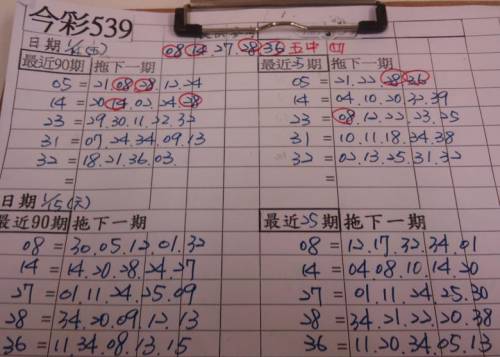 今彩539
日期 08 14.27.28 36 五中四
最近90期 拖下一期 最近25期 拖下一期
05 = 21 08 28 12.24 05 = 21.22 28 36
14 = 20 14 02.24 28 14 = 04.10.20 32.39
23 = 29.30.11.22.32 23 = 08 12.22 23.25
31 = 07.24.34.09.13 31 = 10.11.18.34.38
32 = 18.21.36.03. 32 = 02.13.25.31.32
=
日期 1/5(六)
最近90期 拖下一期 最近25期 拖下一期
08 = 30.05.12.01.32 08 = 12.17.32.34.01
14 = 14.20.28.24.27 14 = 04.08.10.14.20
27 = 01.11.24.25.09 27 = 01.11.24.25.30
28 = 34.20.09.12.13 28 = 34.21.22.20.38
36 = 11.34.08.13.15 36 = 11.20.34.05.13